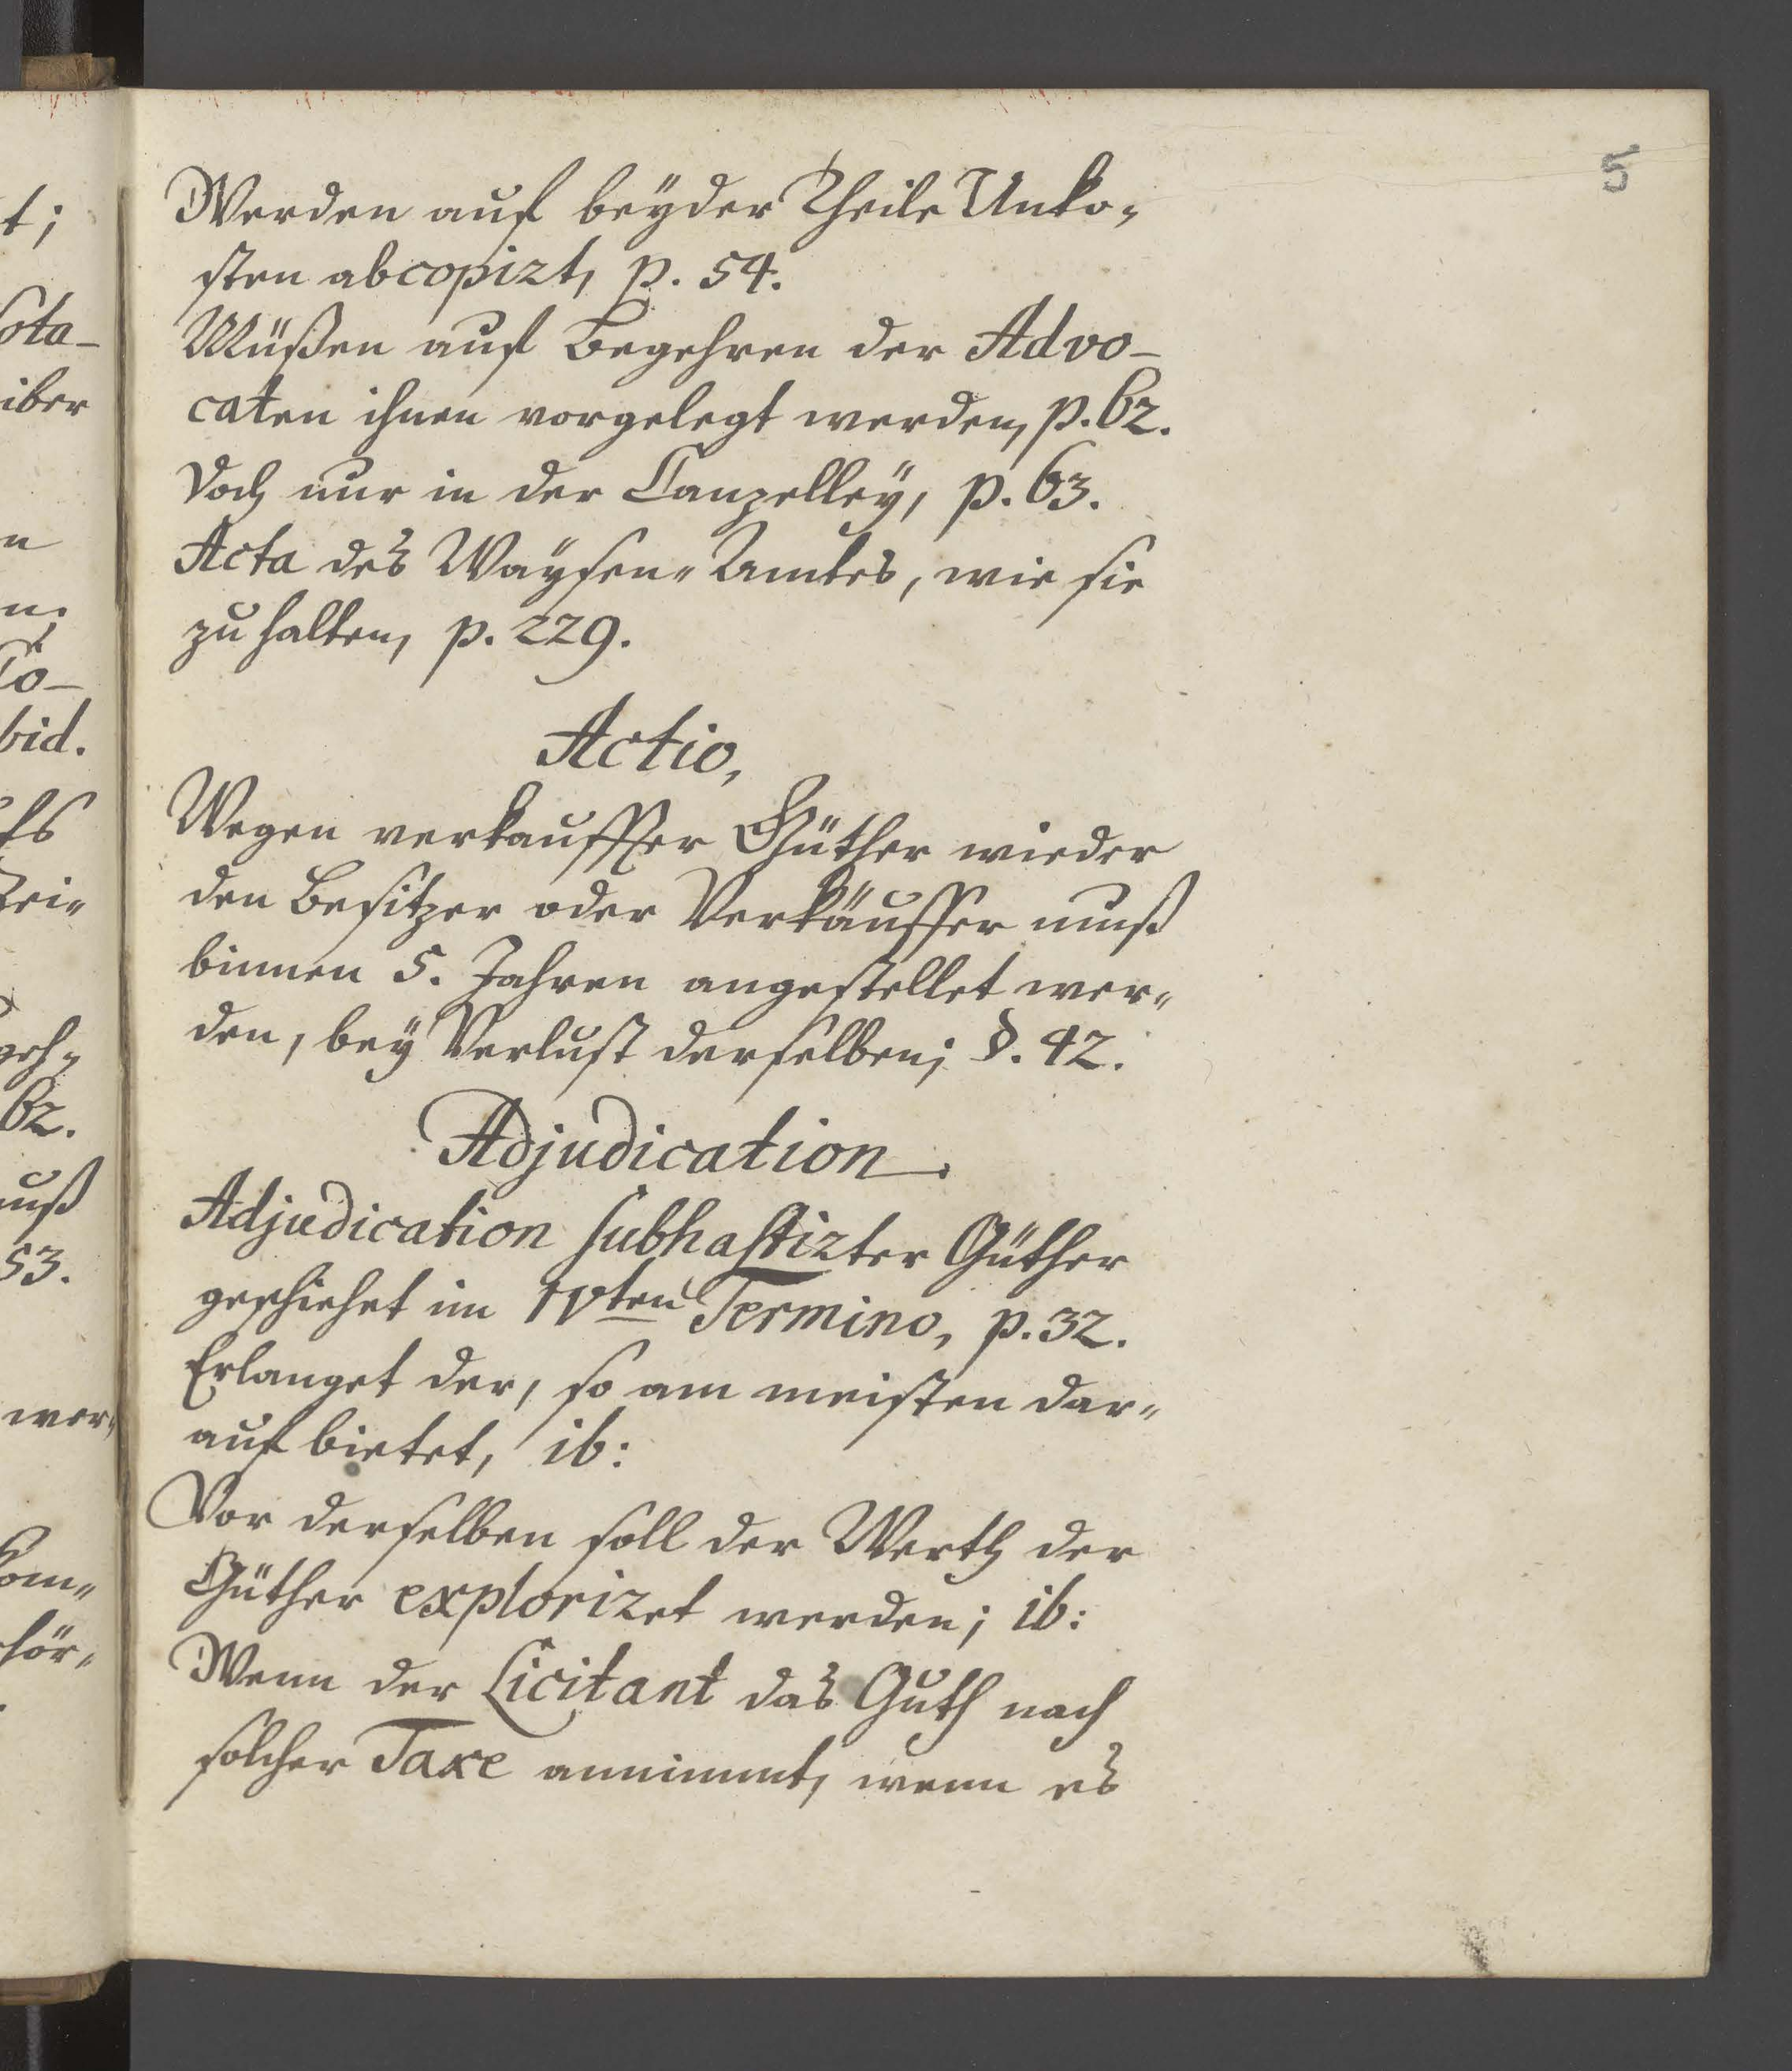 5
Werden auf beyder Theile Unko„
sten abcopirt, p. 54.
Müßen auf Begehren der Advo-
caten ihnen vorgelegt werden, p. 62.
Doch nur in der Canzelley, p. 63.
Acta des Waysen„Amtes, wie sie
zu halten, p. 229.
Actio,
Wegen verkauffter Güther wieder
den Besitzer oder Verkäuffer muß
binnen 5. Jahren angestellet wer„
den, bey Verlust derselben; §. 42.
Adjudication.
Adjudication subhastirter Güther
geschiehet im IVten Termino, p. 32.
Erlanget der, so am meisten dar„
auf bietet, ib:
Vor derselben soll der Werth der
Güther exploriret werden; ib:
Wenn der Licitant das Guth nach
solcher Taxe annimmt, wenn es